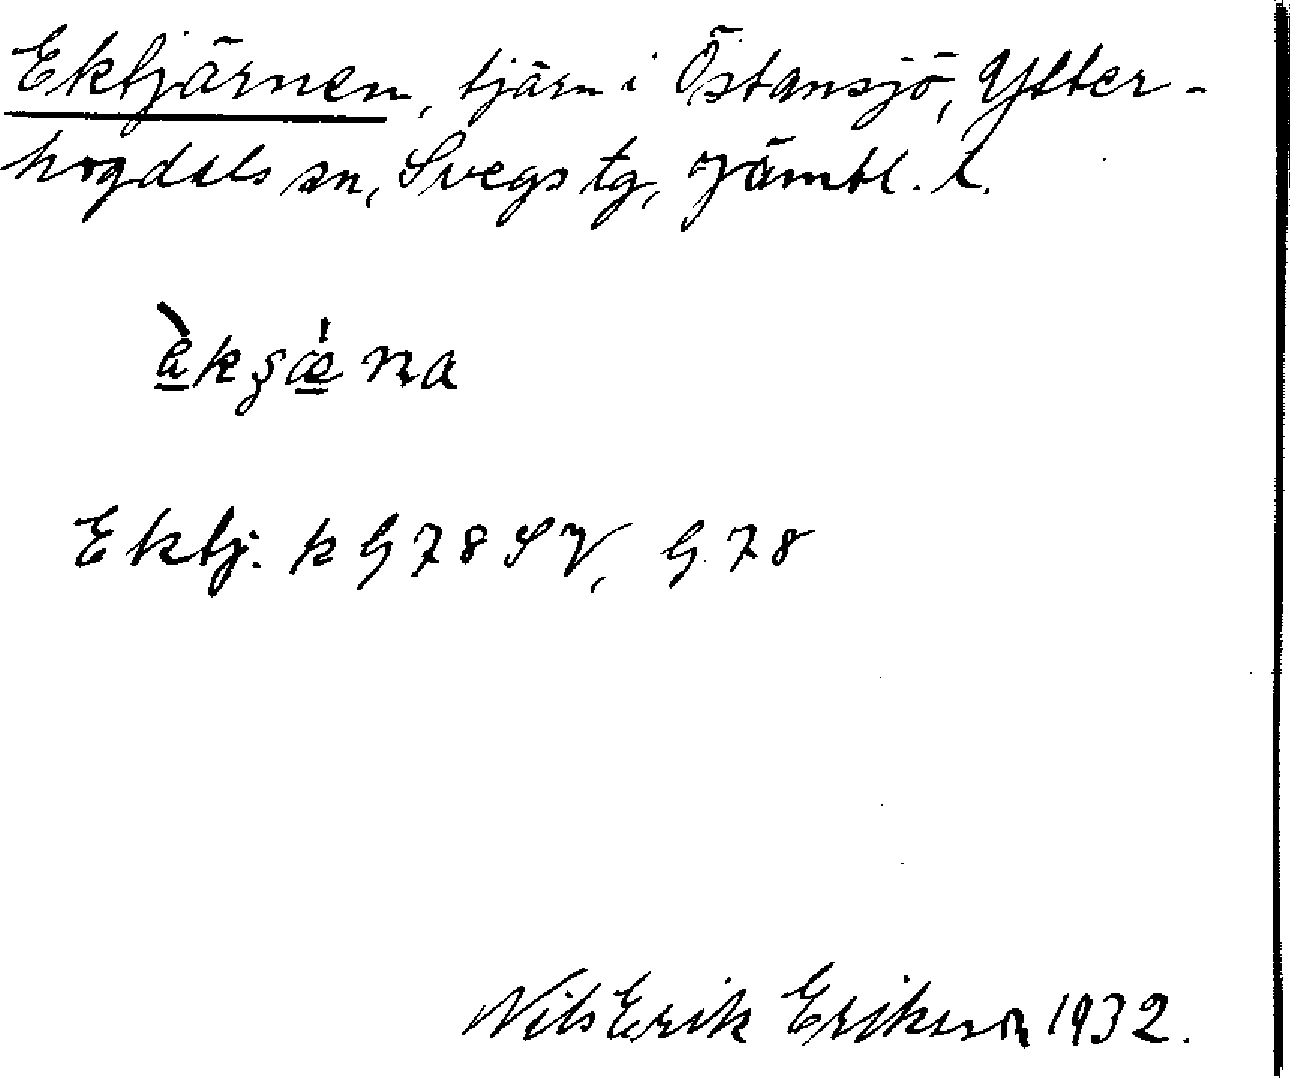 Ektjärnen, tjärn i Östansjö, Ytter-
hogdals sn, Svegs tg, Jämtl. l.
èkʂǽna
Ektj. k G 78 SV, G 78
Nils Erik Erikson 1932.